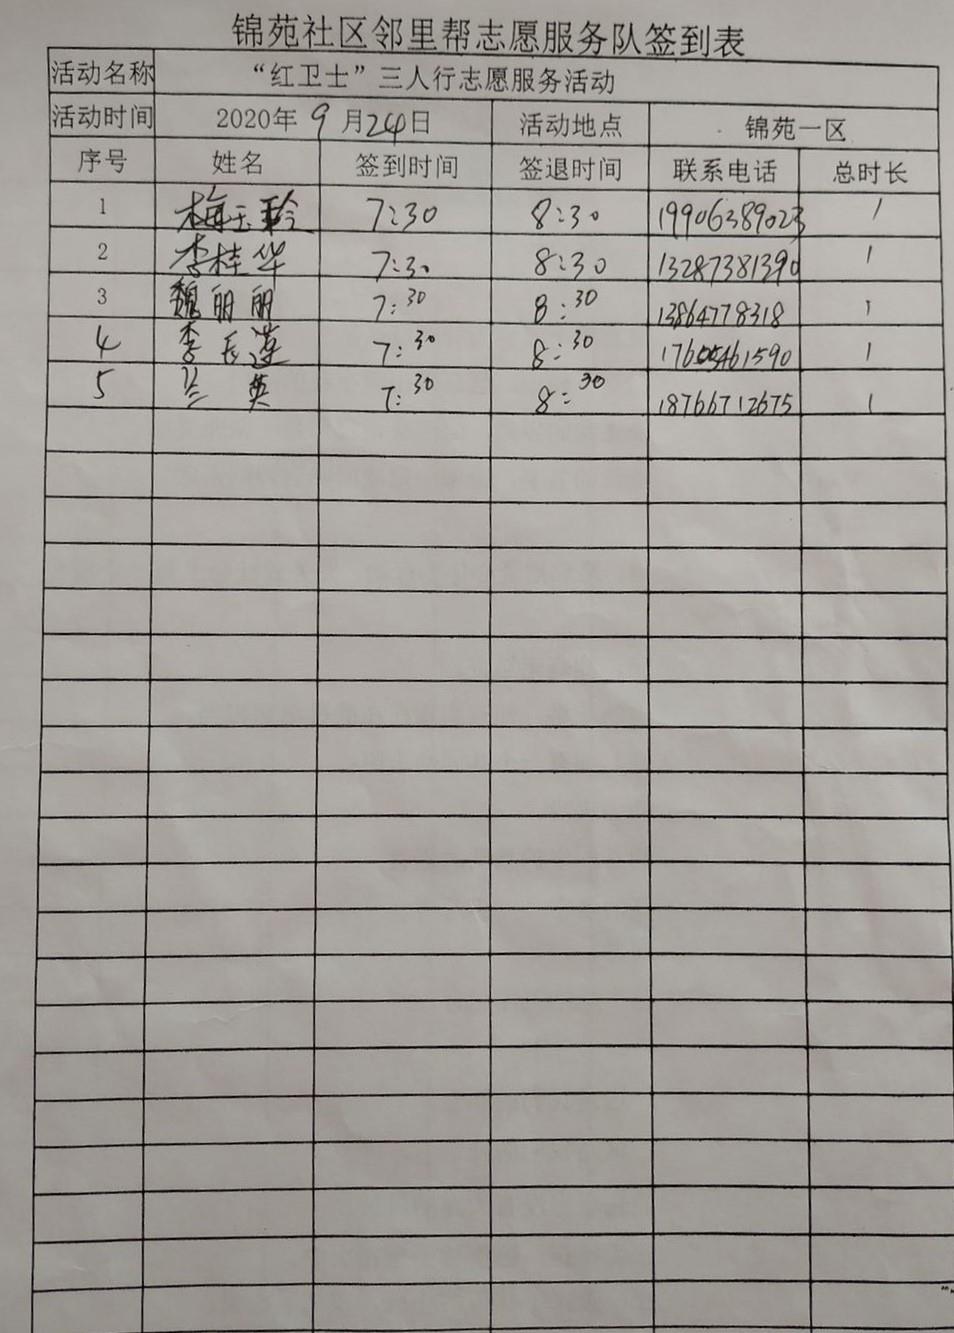 锦苑社区邻里帮志愿服务队签到表
活动名称 “红卫士”三人行志愿服务活动
活动时间 2020年 9 月 24 日 活动地点 锦苑一区
序号 姓名 签到时间 签退时间 联系电话 总时长
1 梅玉玲 7:30 8:30 19906389023 1
2 李桂华 7:30 8:30 13287381390 1
3 魏丽丽 7:30 8:30 13864778318 1
4 李长莲 7:30 8:30 17605461590 1
5 兰英 7:30 8:30 18766712675 1